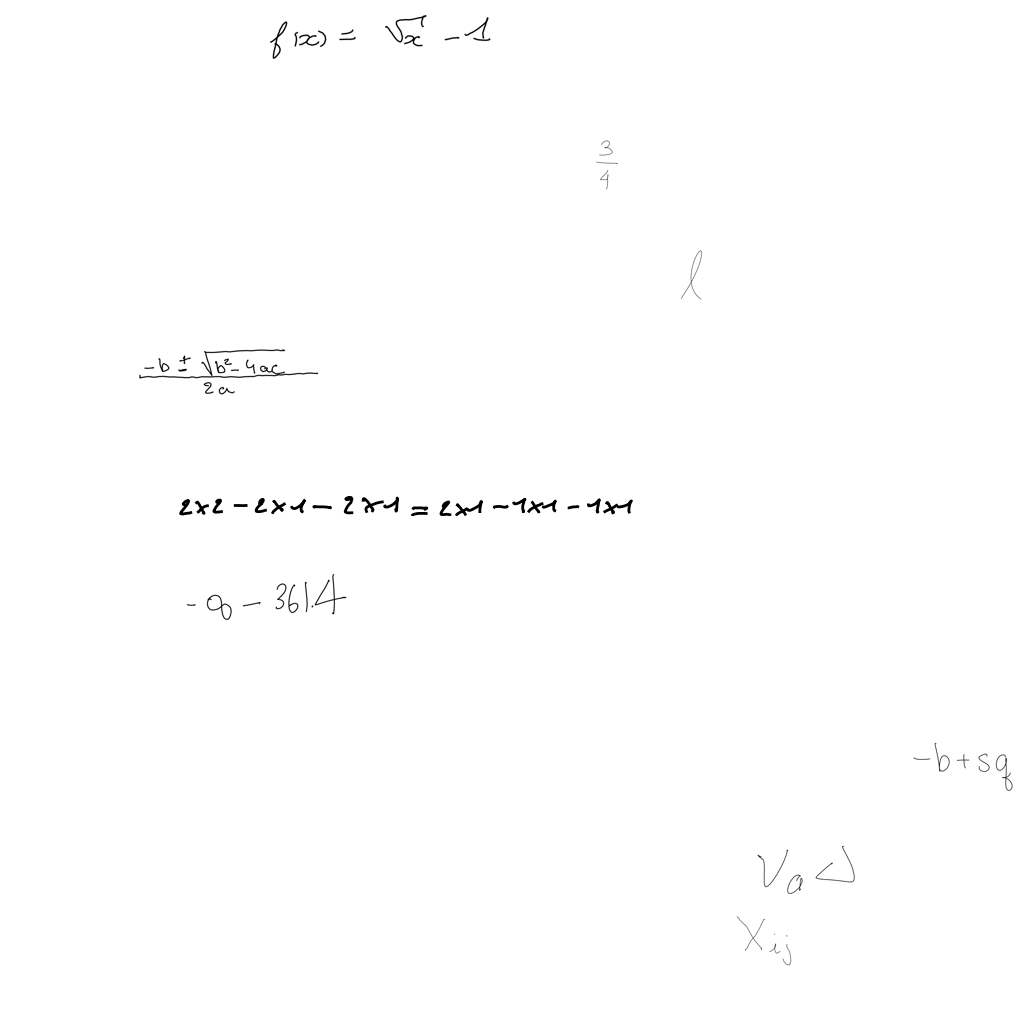 f(x) = √x - 1
3/4
l
(-b ± √(b² - 4ac))/(2a)
2×2 - 2×1 - 2×1 = 2×1 - 1×1 - 1×1
361.4
-b+sq
V_a
X_ij